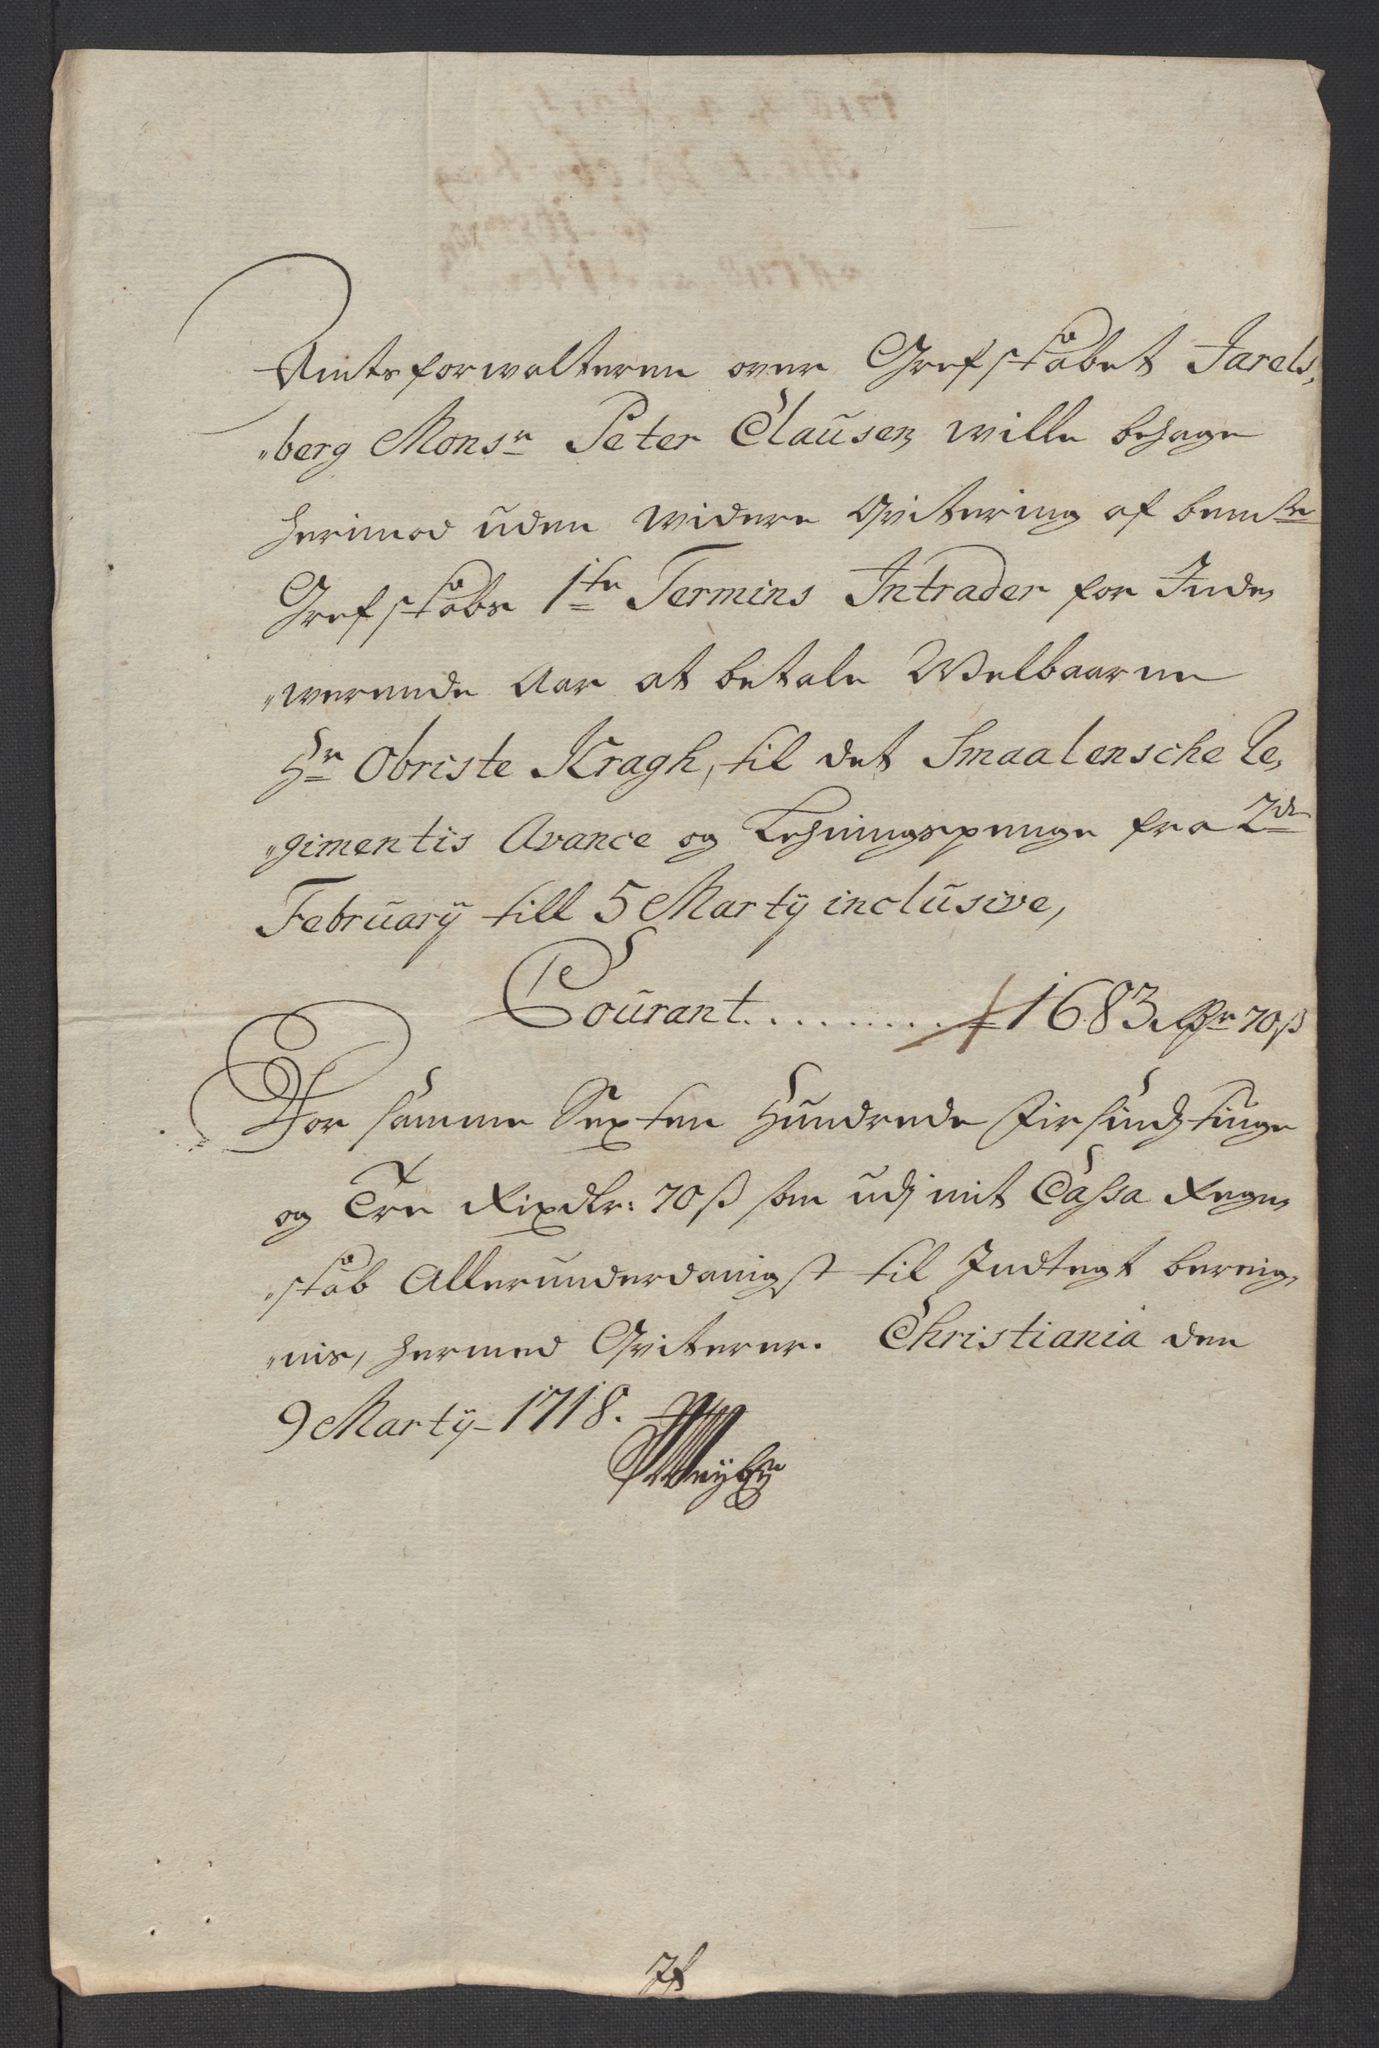 Amtsforwalteren over Grefskabet Jarels,
"berg Monsr Peter Clausen wille behage
herimod uden widere Qvitering af bemte
Grefskabs 1te Termins Intrader for Inde,
"werende Aar at betale Welbaarne
Hr Obriste Kragh, til det Smaalensche Re,
"gimentis Avance og Lehningspenge fra 2de
February till 5 Marty inclusive,
Courant......... 1683 Rdr 70 ß
For samme Sexten Hundrede Firsindztiuge
og Tre Rixdlr: 70 ß som udj mit Cassa Regn,
"skab Allerunderdanigst til Indtegt bereig,
"nis, hermed Qviterer. Christiania den
9 Marty 1718.